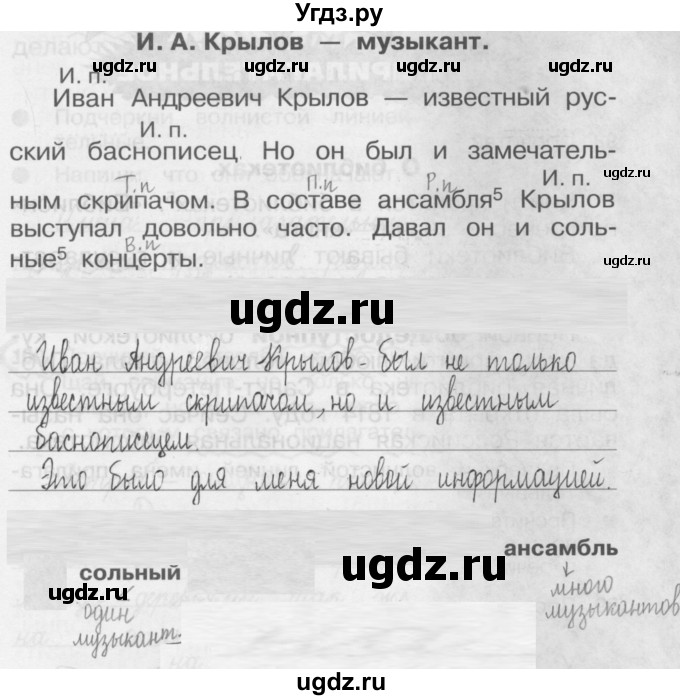 Угдз.ру
И. А. Крылов — музыкант.
И. п.
Иван Андреевич Крылов — известный рус-
И. п.
ский баснописец. Но он был и замечатель-
Т.п П.п Р.п И. п.
ным скрипачом. В составе ансамбля⁵ Крылов
выступал довольно часто. Давал он и соль-
В.п
ные⁵ концерты.
ugdz.ru
ugdz.ru
ugdz.ru
Иван Андреевич Крылов был не только
известным скрипачом, но и известным
баснописцем.
Это было для меня новой информацией.
ugdz.ru
ugdz.ru
ansамбль
сольный
ugdz.ru
ugdz.ru
много
музыкантов
один
музыкант.
ugdz.ru